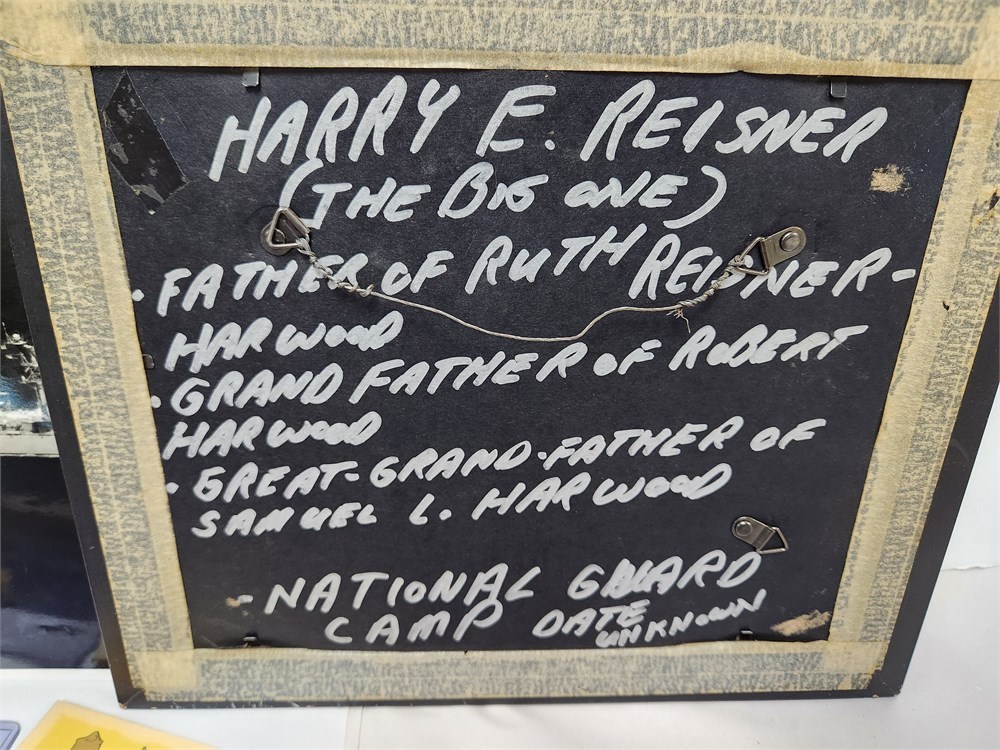 HARRY E. REISNER
(THE BIG ONE)
· FATHER OF RUTH REISNER-
HARWOOD
· GRAND FATHER OF ROBERT
HARWOOD
· GREAT-GRAND-FATHER OF
SAMUEL L. HARWOOD
- NATIONAL GUARD
CAMP DATE
UNKNOWN